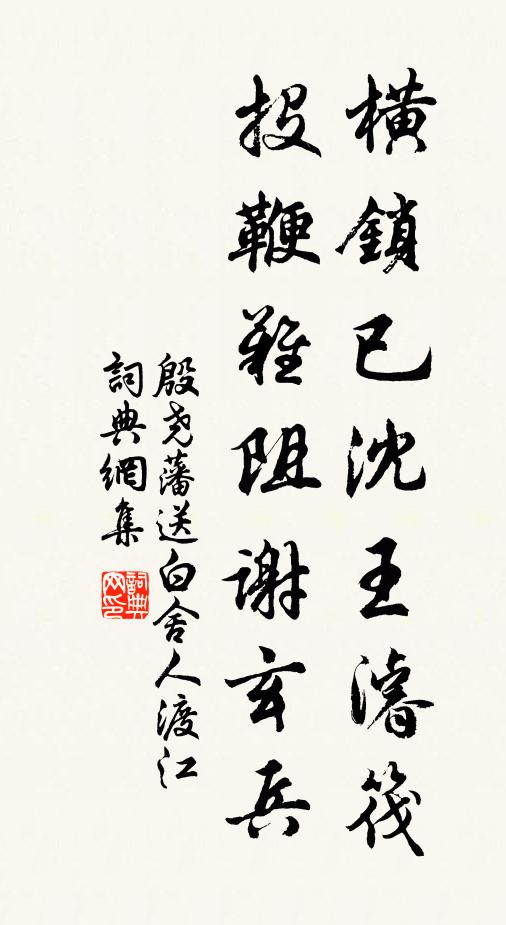 橫鎖已沈王濬筏
投鞭難阻謝玄兵
殷尭藩送白舍人渡江
詞典網集
詞典
网印